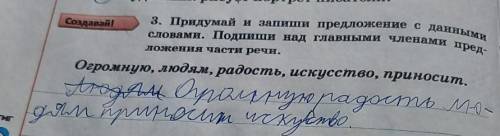 Создавай!
3. Придумай и запиши предложение с данными
словами. Подпиши над главными членами пред-
ложения части речи.
Огромную, людям, радость, искусство, приносит.
Людям Огромную радость лю-
дям приносит искуство.